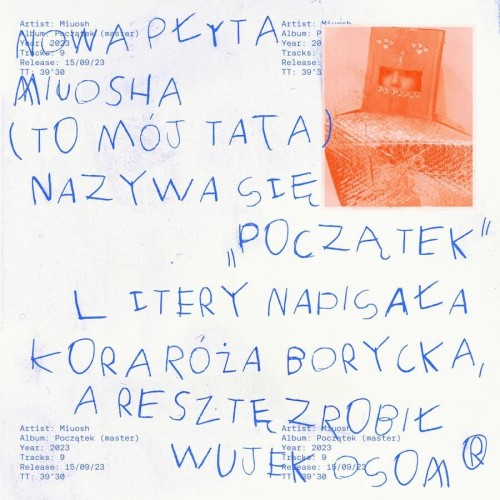 Artist: Miuosh
Album: Początek (master)
Year: 2023
Tracks: 9
Release: 15/09/23
TT: 39'30
Artist: Miuosh
NOWA PŁYTA
MIUOSHA
(TO MÓJ TATA)
NAZYWA SIĘ
„POCZĄTEK"
LITERY NAPISAŁA
KORA RÓŻA BORYCKA,
A RESZTĘ ZROBIŁ
WUJEK OSOM®
Artist: Miuosh
Album: Początek (master)
Year: 2023
Tracks: 9
Release: 15/09/23
TT: 39'30
Artist: Miuosh
Album: Początek (master)
Year: 2023
Tracks: 9
Release: 15/09/23
TT: 39'30